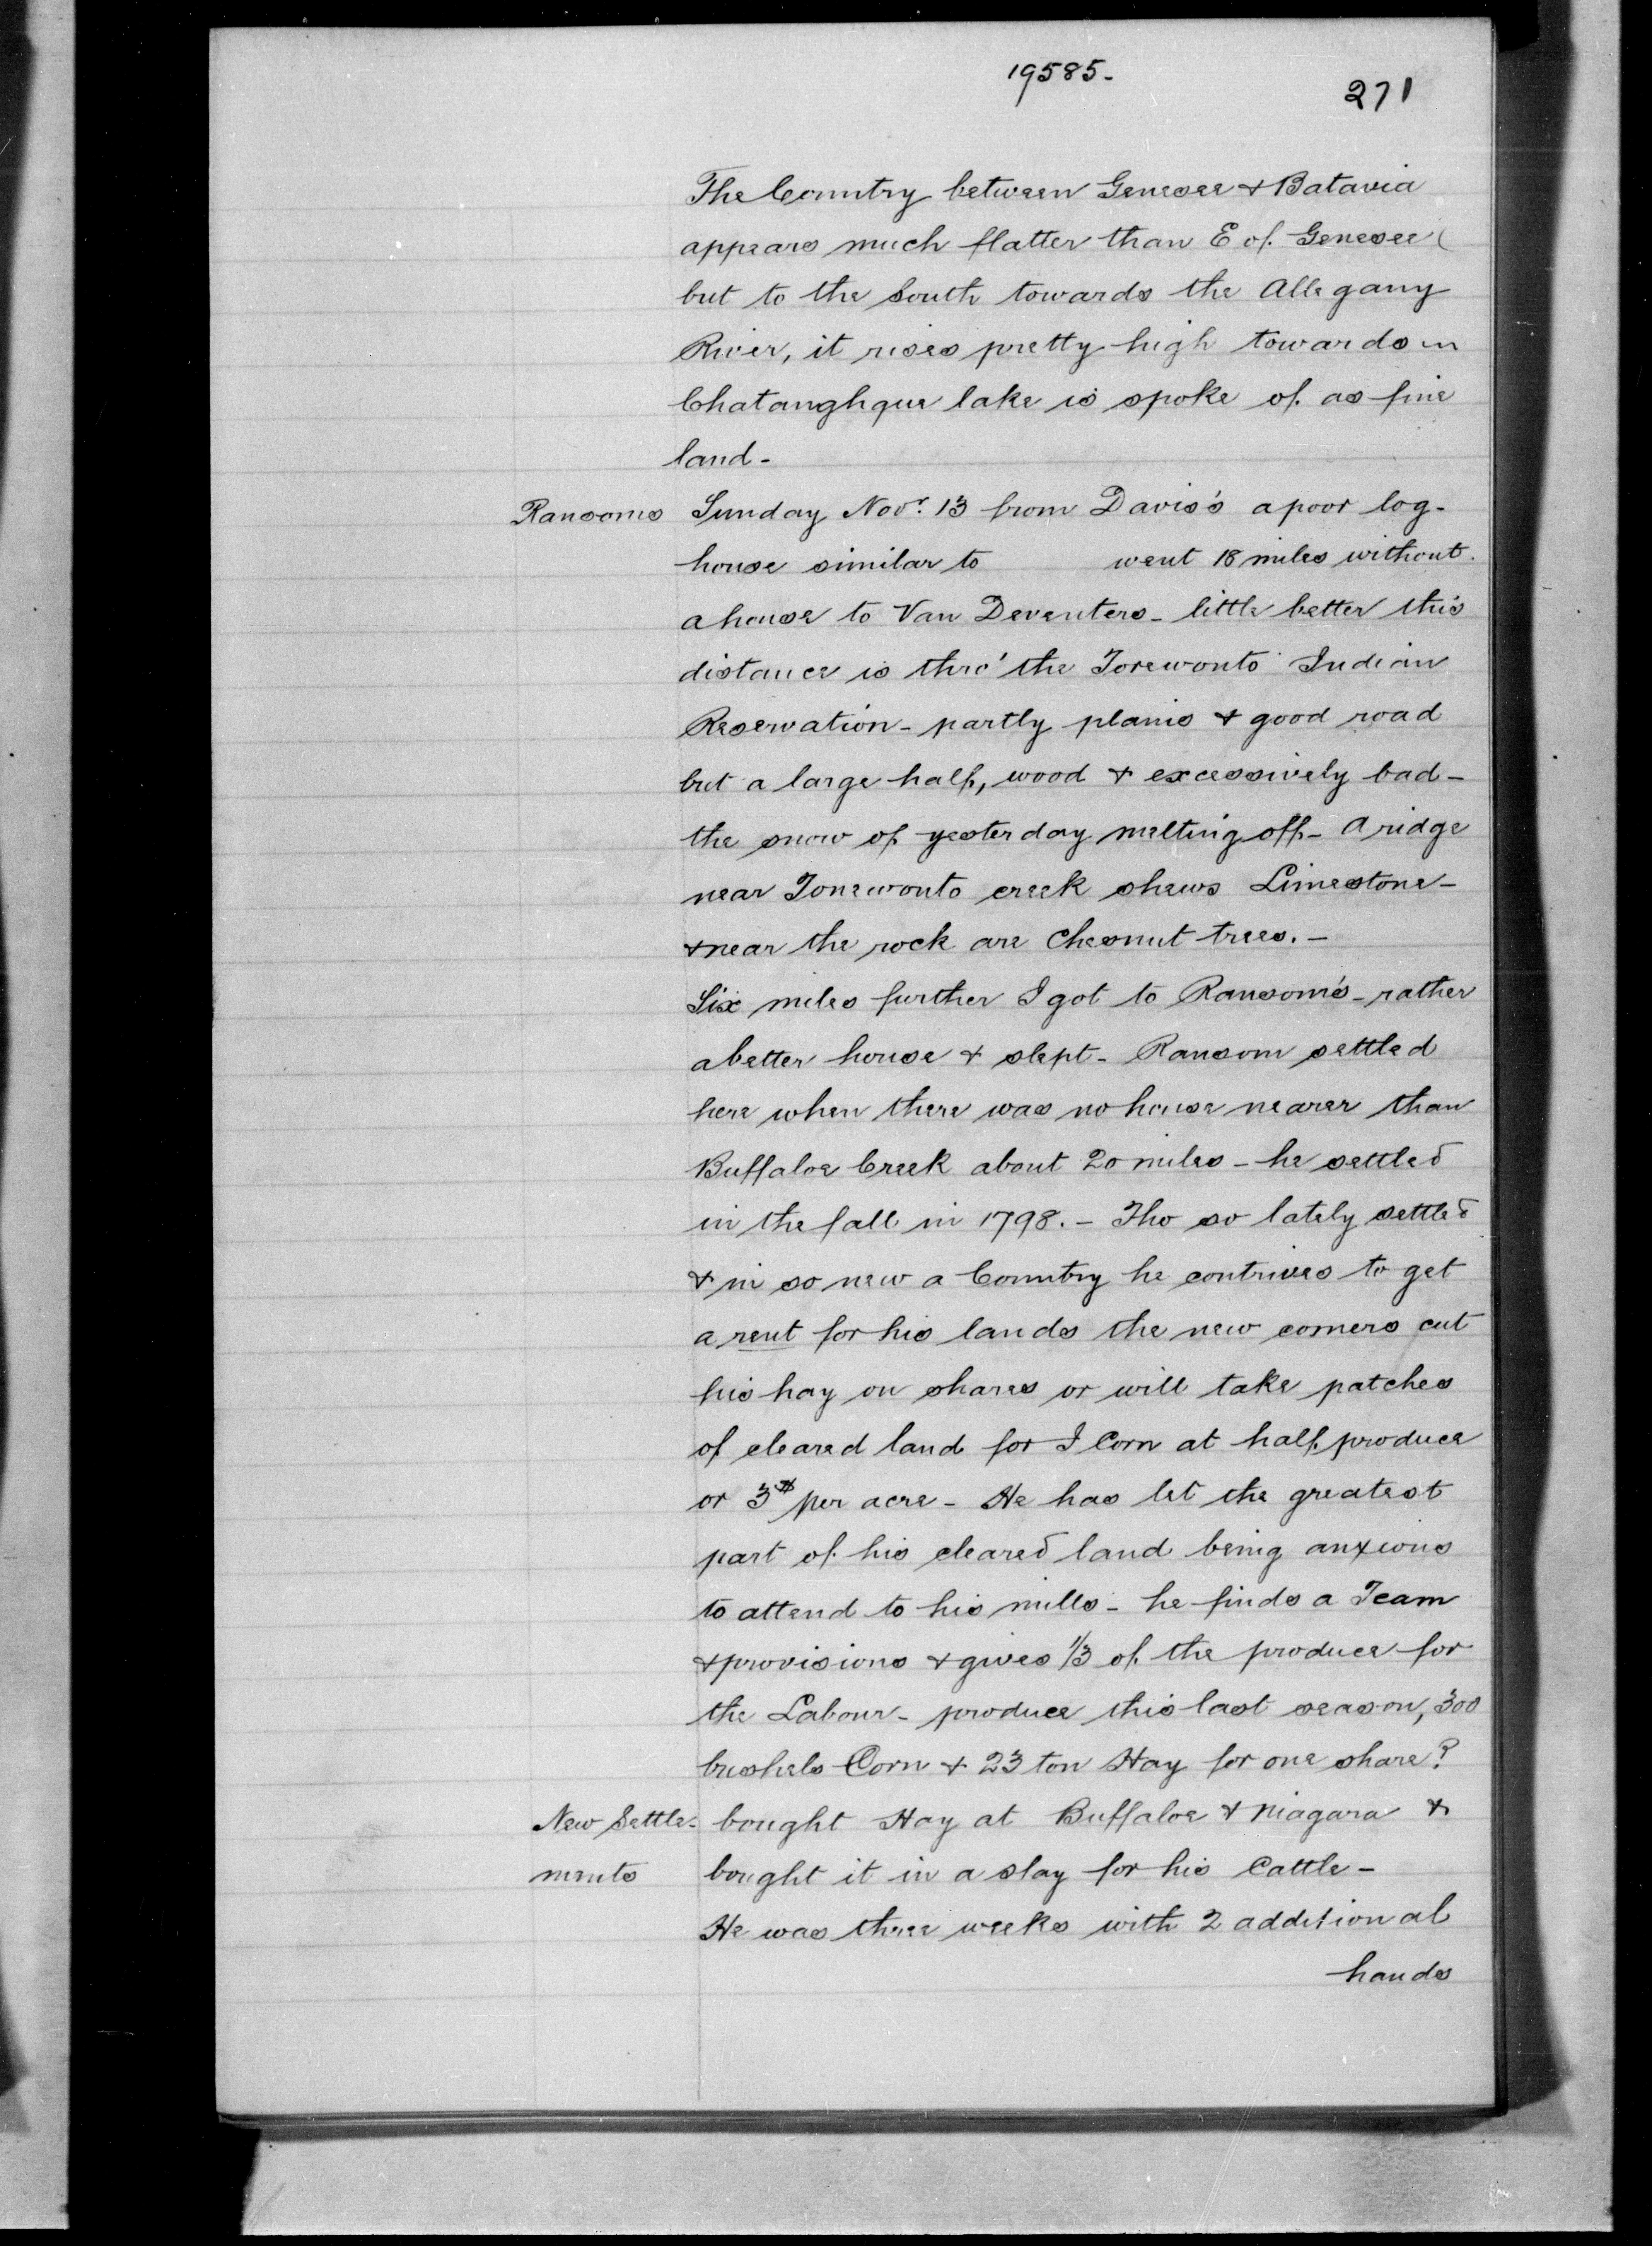 19585.
271
The Country between Genesee & Batavia
appears much flatter than E of Genesee (
but to the South towards the Allegany
River, it rises pretty high towards
Chatanghque lake is spoke of as fine
land -
Ransoms Sunday Novr. 13 from Davis's a poor log-
house similar to went 18 miles without.
a house to Van Deventers - little better this
distance is thro' the Torewonto Indian
Reservation - partly plains & good road
but a large half, wood & excessively bad -
the snow of yesterday melting off - A ridge
near Tonewonto creek shews Limestone -
& near the rock are Chesnut trees. -
Six miles further I got to Ransom's - rather
a better house & slept - Ransom settled
here when there was no house nearer than
Buffaloe Creek about 20 miles - he settled
in the fall in 1798. - Tho so lately settled
& in so new a Country he contrives to get
a rent for his lands the new comers cut
his hay on shares or will take patches
of cleared land for I Corn at half produce
or 3$ per acre - He has let the greatest
part of his cleared land being anxious
to attend to his mills - he finds a Team
& provisions & gives 1/3 of the produce for
the Labour - produce this last season, 300
bushels Corn & 23 ton Hay for one share?
New Settle- bought Hay at Buffaloe & Niagara &
ments bought it in a slay for his Cattle -
He was three weeks with 2 additional
hands